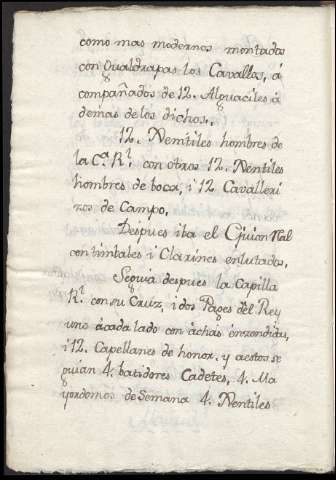 como mas modernos montados
con Gualdrapas los Cavallos, á
compañados de 12. Alguaciles á
demas de los dichos.
12. Nentiles hombres de
la Cª. Rˡ. con otros 12. Nentiles
hombres de boca, i 12 Cavalleri
zos de Campo.
Despues iba el Guion Real
con timbales i Clarines enlutados,
Seguia despues la Capilla
Rˡ. con su Cruz, i dos Pages del Rey
uno á cada lado con áchas enzendidas,
i 12. Capellanes de honor. y aestos se
guian 4. batidores Cadetes, 4. Ma
yordomos de Semana 4. Nentiles